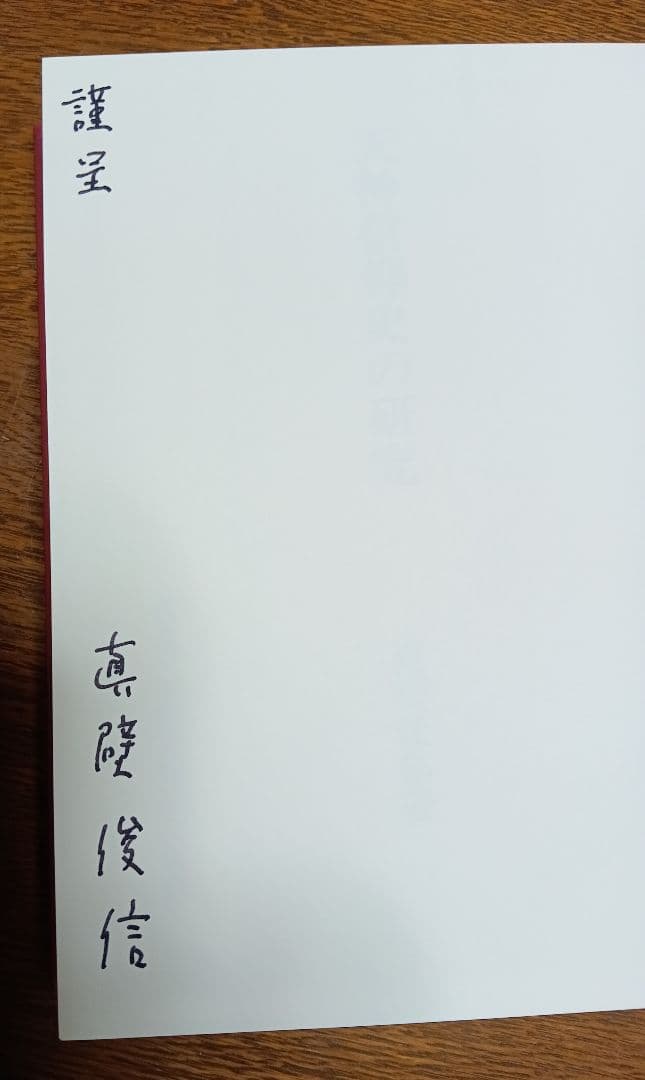 謹呈
真壁俊信